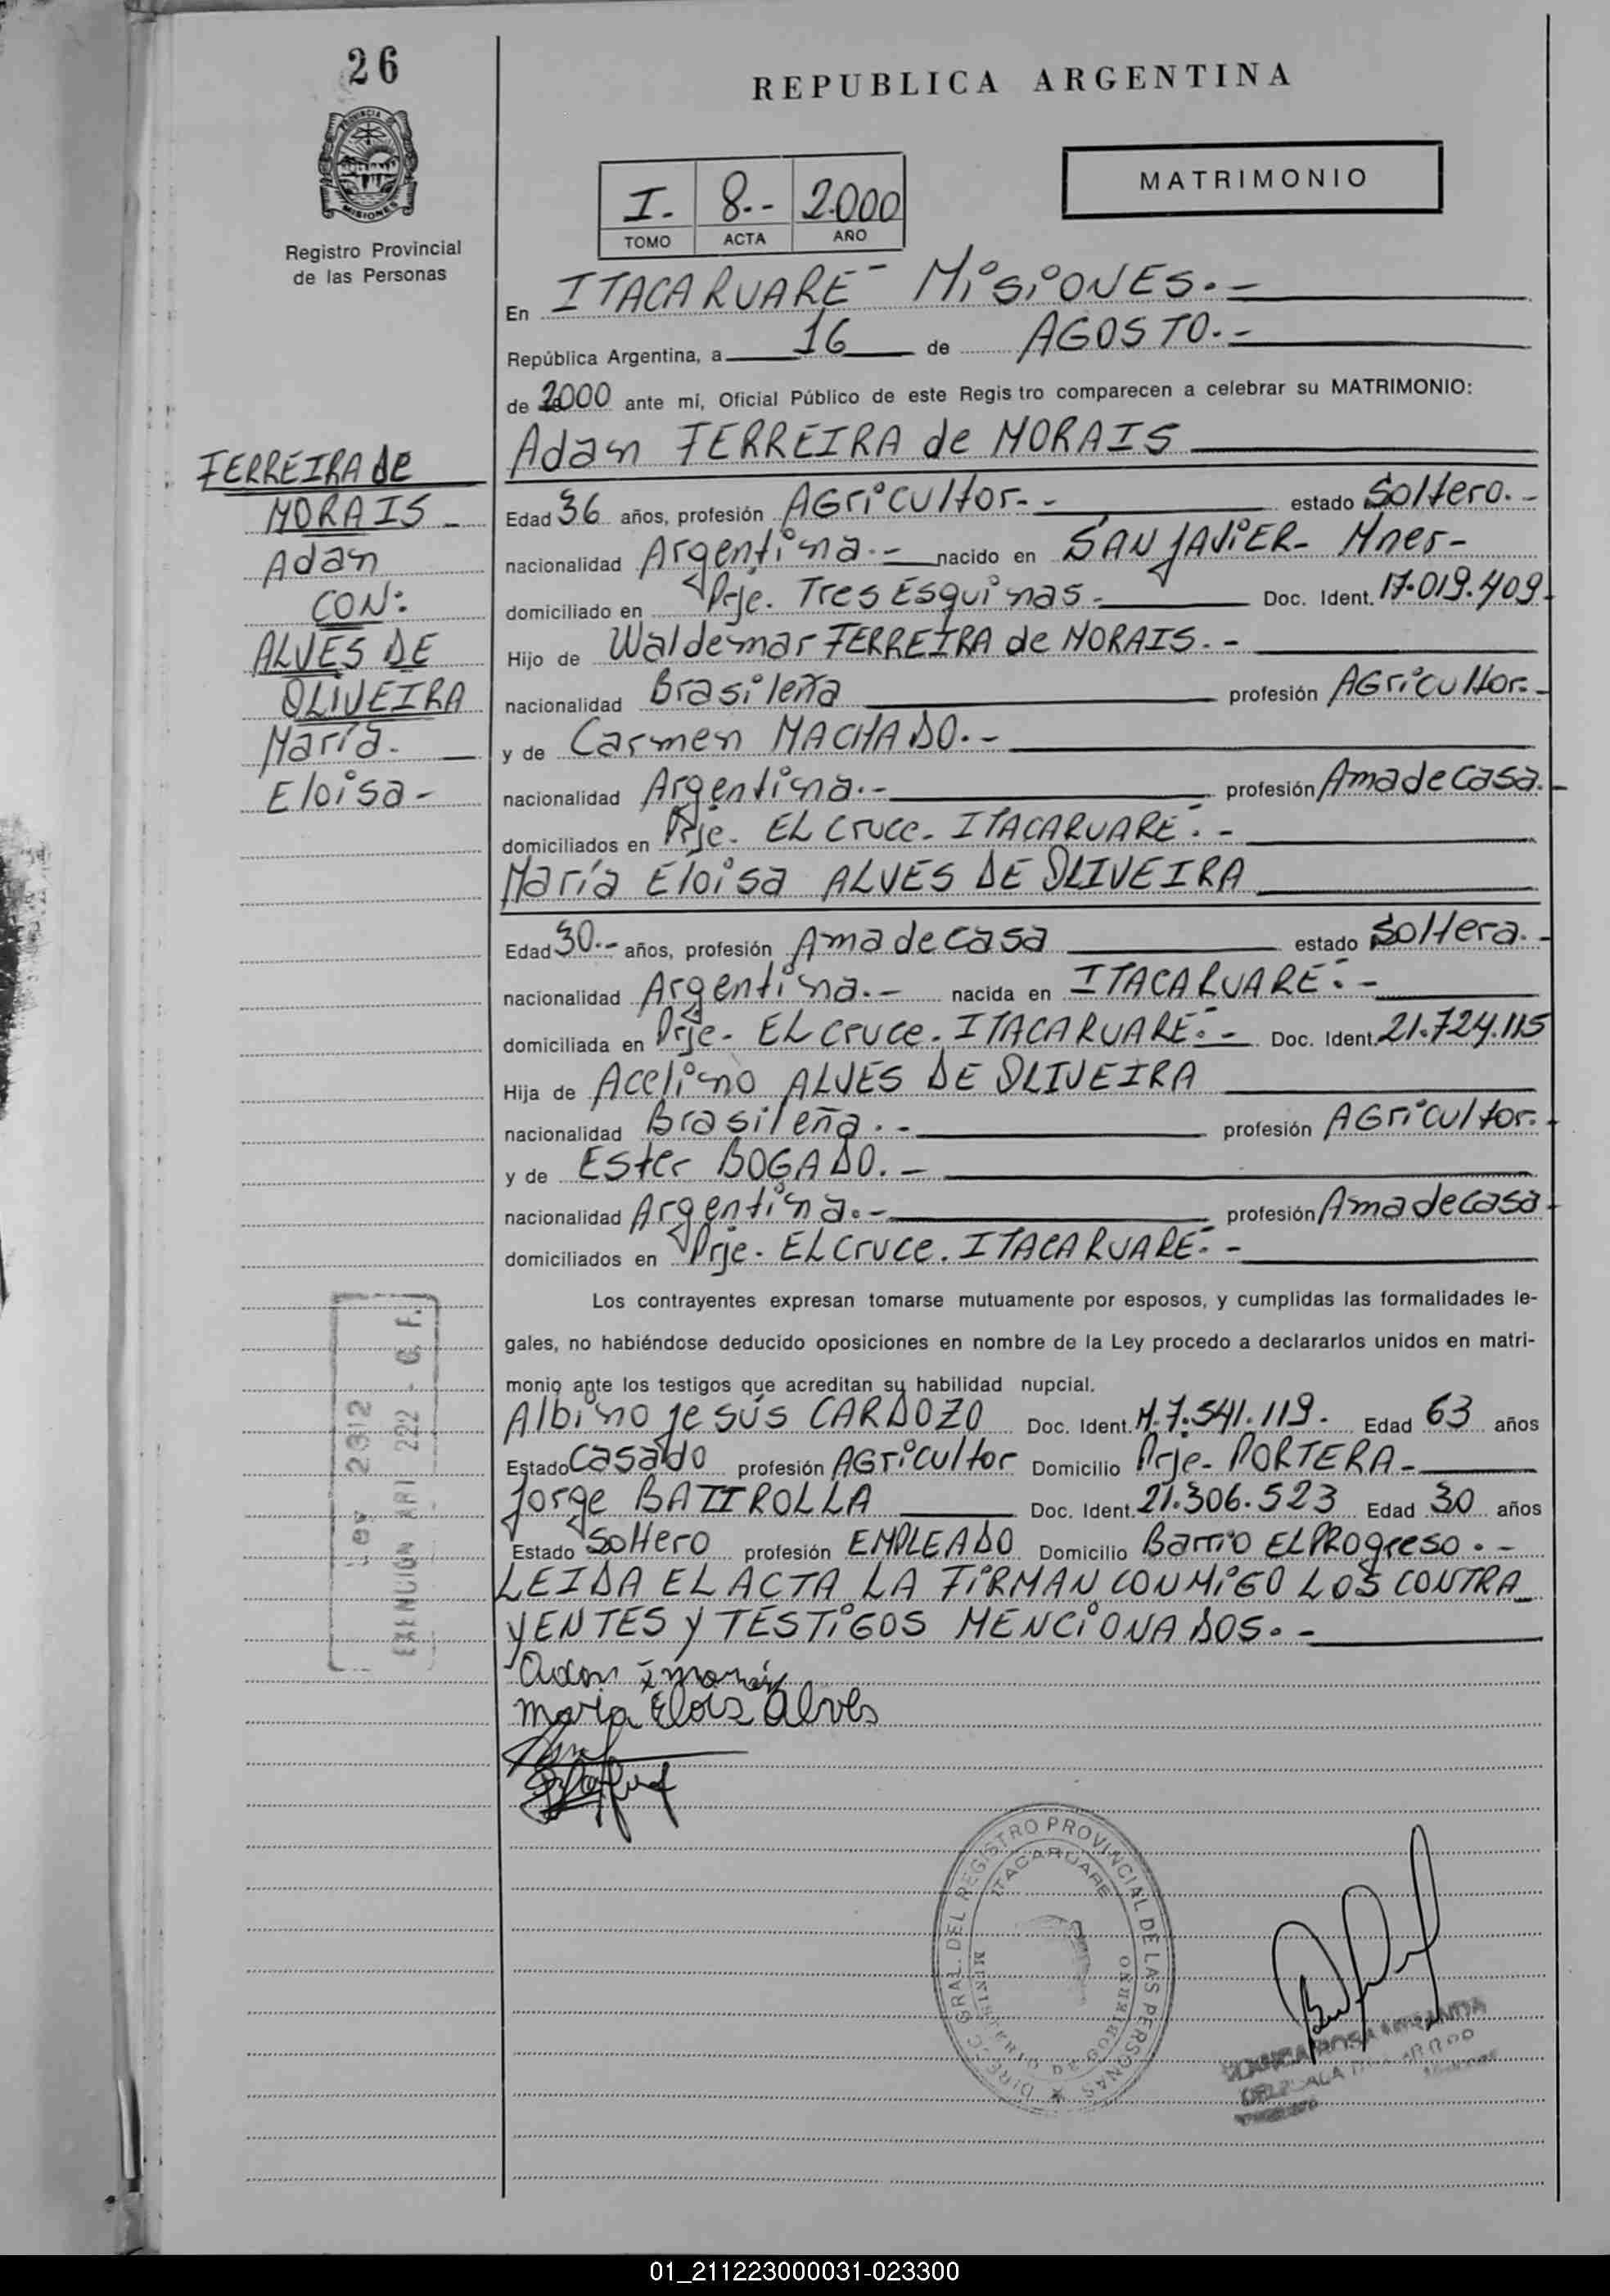 26
REPUBLICA ARGENTINA
PROVINCIA DE
MISIONES
Registro Provincial
de las Personas
MATRIMONIO
I.- 8.-- 2.000
TOMO ACTA AÑO
En ITACARUARE - MisiONES.-
República Argentina, a 16 de AGOSTO.-
de 2000 ante mí, Oficial Público de este Regis tro comparecen a celebrar su MATRIMONIO:
Adan FERREIRA de MORAIS
Edad 36 años, profesión AGricultor.- estado Soltero.-
nacionalidad Argentina.- nacido en SAN JAViER- Mnes-
domiciliado en Prje. Tres Esquinas.- Doc. Ident. 17.019.409.
Hijo de Waldemar FERREIRA de MORAIS.-
nacionalidad Brasileña profesión AGricultor.-
y de Carmen MACHADO.-
nacionalidad Argentina.- profesión Ama de casa.-
domiciliados en Prje. EL Cruce. ITACARUARE.-
María Eloisa ALVES DE OLIVEIRA
Edad 30.-- años, profesión Ama de casa estado Soltera.-
nacionalidad Argentina.- nacida en ITACARUARE.-
domiciliada en Prje- EL cruce. ITACARUARE.- Doc. Ident. 21.724.115
Hija de Acelino ALVES DE OLIVEIRA
nacionalidad Brasileña.- profesión AGricultor.-
y de Ester BOGADO.-
nacionalidad Argentina.- profesión Ama de casa-
domiciliados en Prje. EL Cruce. ITACARUARE.-
Los contrayentes expresan tomarse mutuamente por esposos, y cumplidas las formalidades le-
gales, no habiéndose deducido oposiciones en nombre de la Ley procedo a declararlos unidos en matri-
monio ante los testigos que acreditan su habilidad nupcial.
Albino jesús CARDOZO Doc. Ident. M.7.541.119. Edad 63 años
Estado Casado profesión AGricultor Domicilio Prje- PORTERA-
Jorge BATTROLLA Doc. Ident. 21.306.523 Edad 30 años
Estado Soltero profesión EMPLEADO Domicilio Barrio EL PROgreso.-
LEIDA EL ACTA LA FiRMAN CONMiGO LOS CONTRA_
YENTES y TESTiGOS MENCiONADOS.-
maria Elois Alves
FERREIRA de
MORAIS-
Adan
CON:
ALVES DE
OLIVEIRA
María.
Eloisa-
Ley 2312
EXENCIÓN ARI 222 - C F.
DIRECC. GRAL. DEL REGISTRO PROVINCIAL DE LAS PERSONAS
ITACARUARE
MINISTERIO DE GOBIERNO
ROSA MIRANDA
01_211223000031-023300